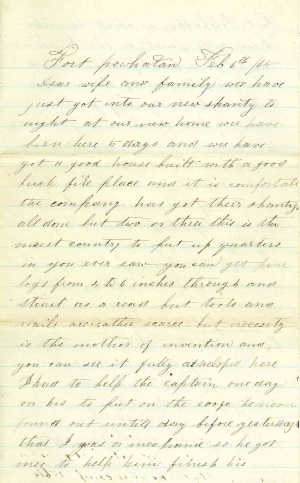 Fort powhatan Feb 6th /65
Dear wife and family we have
just got into our new shanty to
night at our new home we have
been here 5 days and we have
got a good house built with a good
brick fire place and it is comfortable
the company has got their shantys
all done but two or three this is the
nicest county to put up quarters
in you ever saw you can get pine
logs from 4 to 6 inches through and
strait as a but tools and
nails are rather scarce but necesity
is the mother of invention and
you can see it fully developed here
I had to help the captain one day
on his to put on the he never
found out untill day before yesterday
that I was a mechanic so he got
me to help him finish his